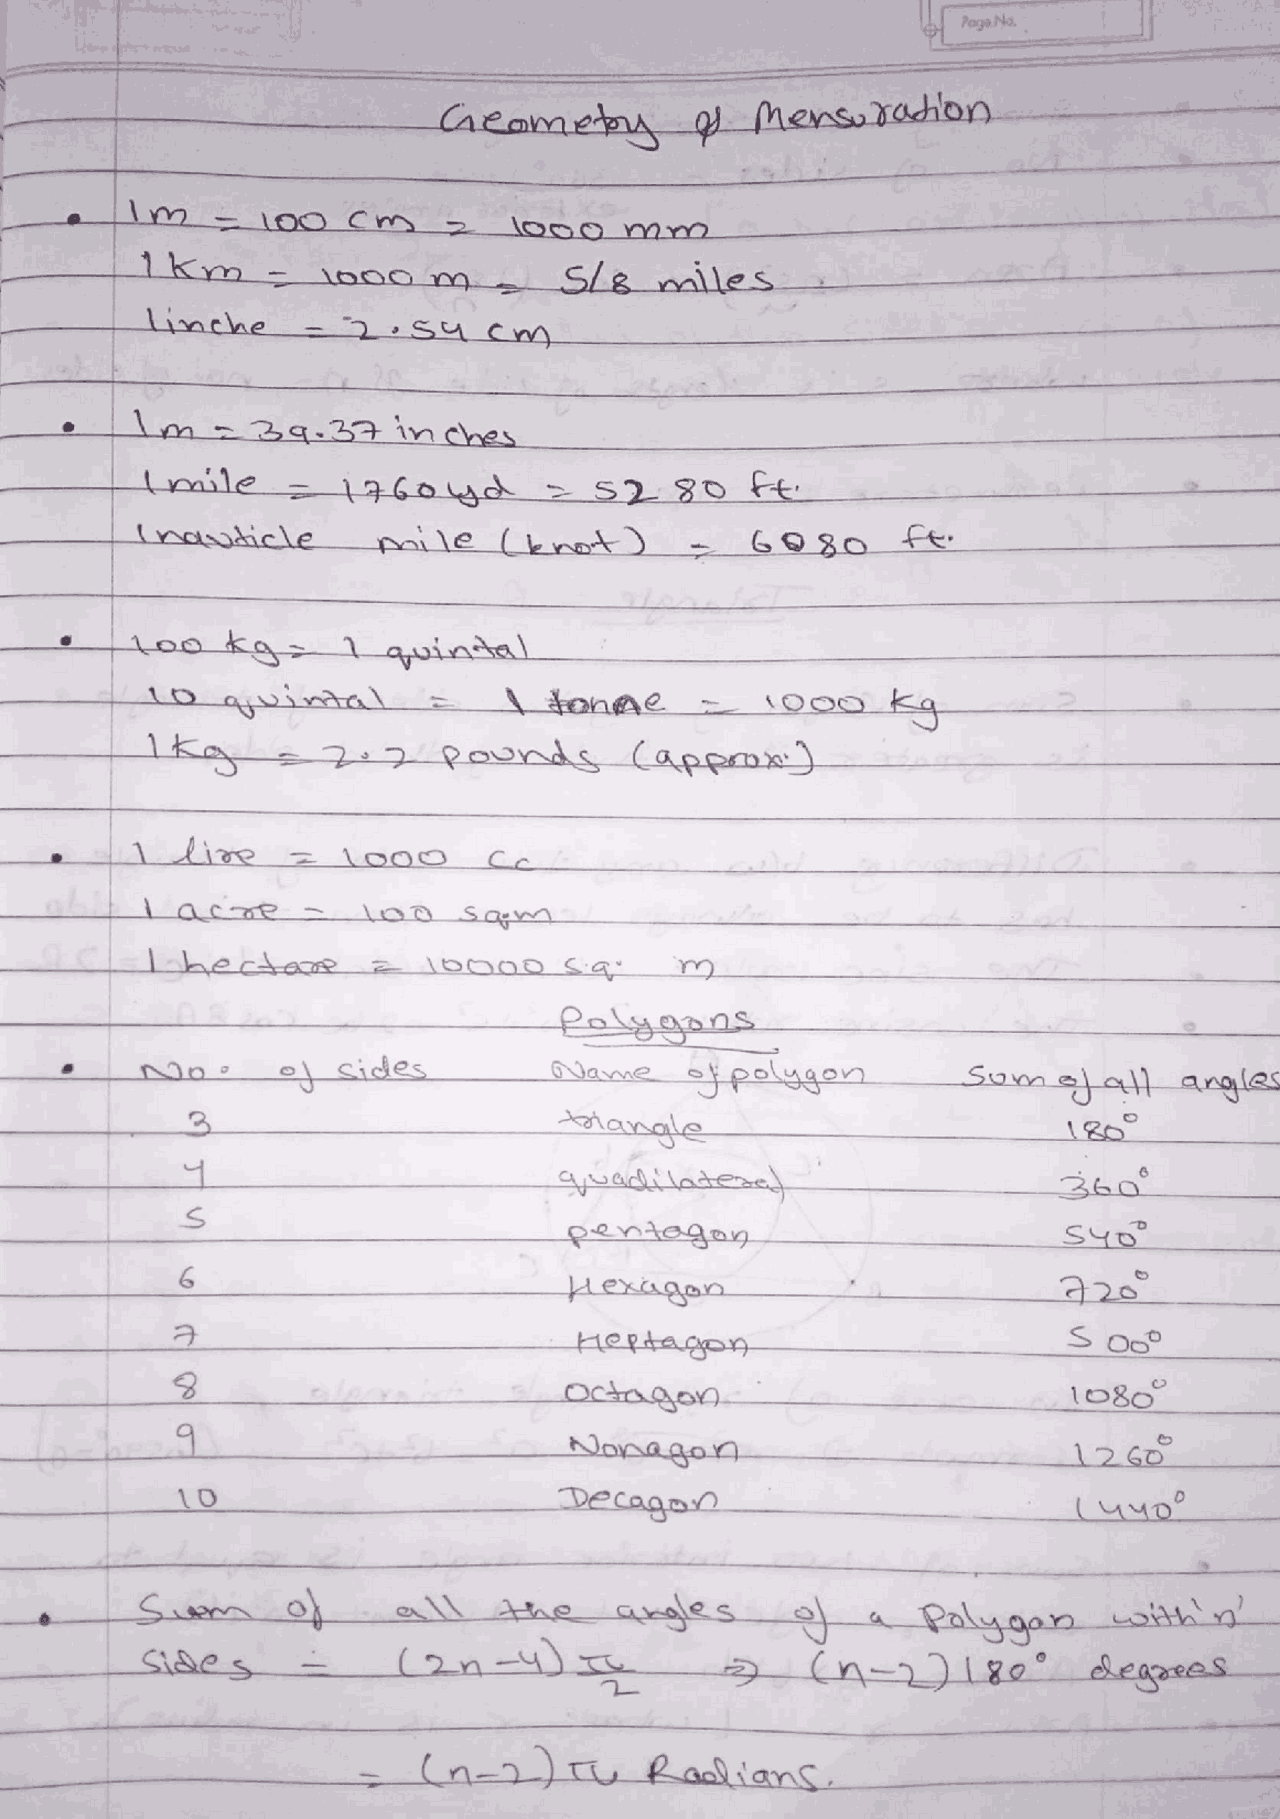 Page No.
Geometry & Mensuration
• 1m = 100 cm = 1000 mm
1 Km = 1000 m = 5/8 miles
1inche = 2.54 cm
• 1m = 39.37 inches
1 mile = 1760 yd = 5280 ft.
1 nauticle mile (knot) = 6080 ft.
• 100 kg = 1 quintal
10 quintal = 1 tonne = 1000 kg
1 Kg = 2.2 pounds (approx.)
• 1 lire = 1000 cc
1 acre = 100 sq.m
1 hectare = 10000 s.q. m
Polygons
• No. of sides Name of polygon Sum of all angles
3 triangle 180°
4 quadilateral 360°
5 pentagon 540°
6 Hexagon 720°
7 Heptagon 500°
8 Octagon 1080°
9 Nonagon 1260°
10 Decagon 1440°
• Sum of all the angles of a Polygon with 'n'
sides = (2n-4) π/2 ⇒ (n-2) 180° degrees
= (n-2) π Radians.